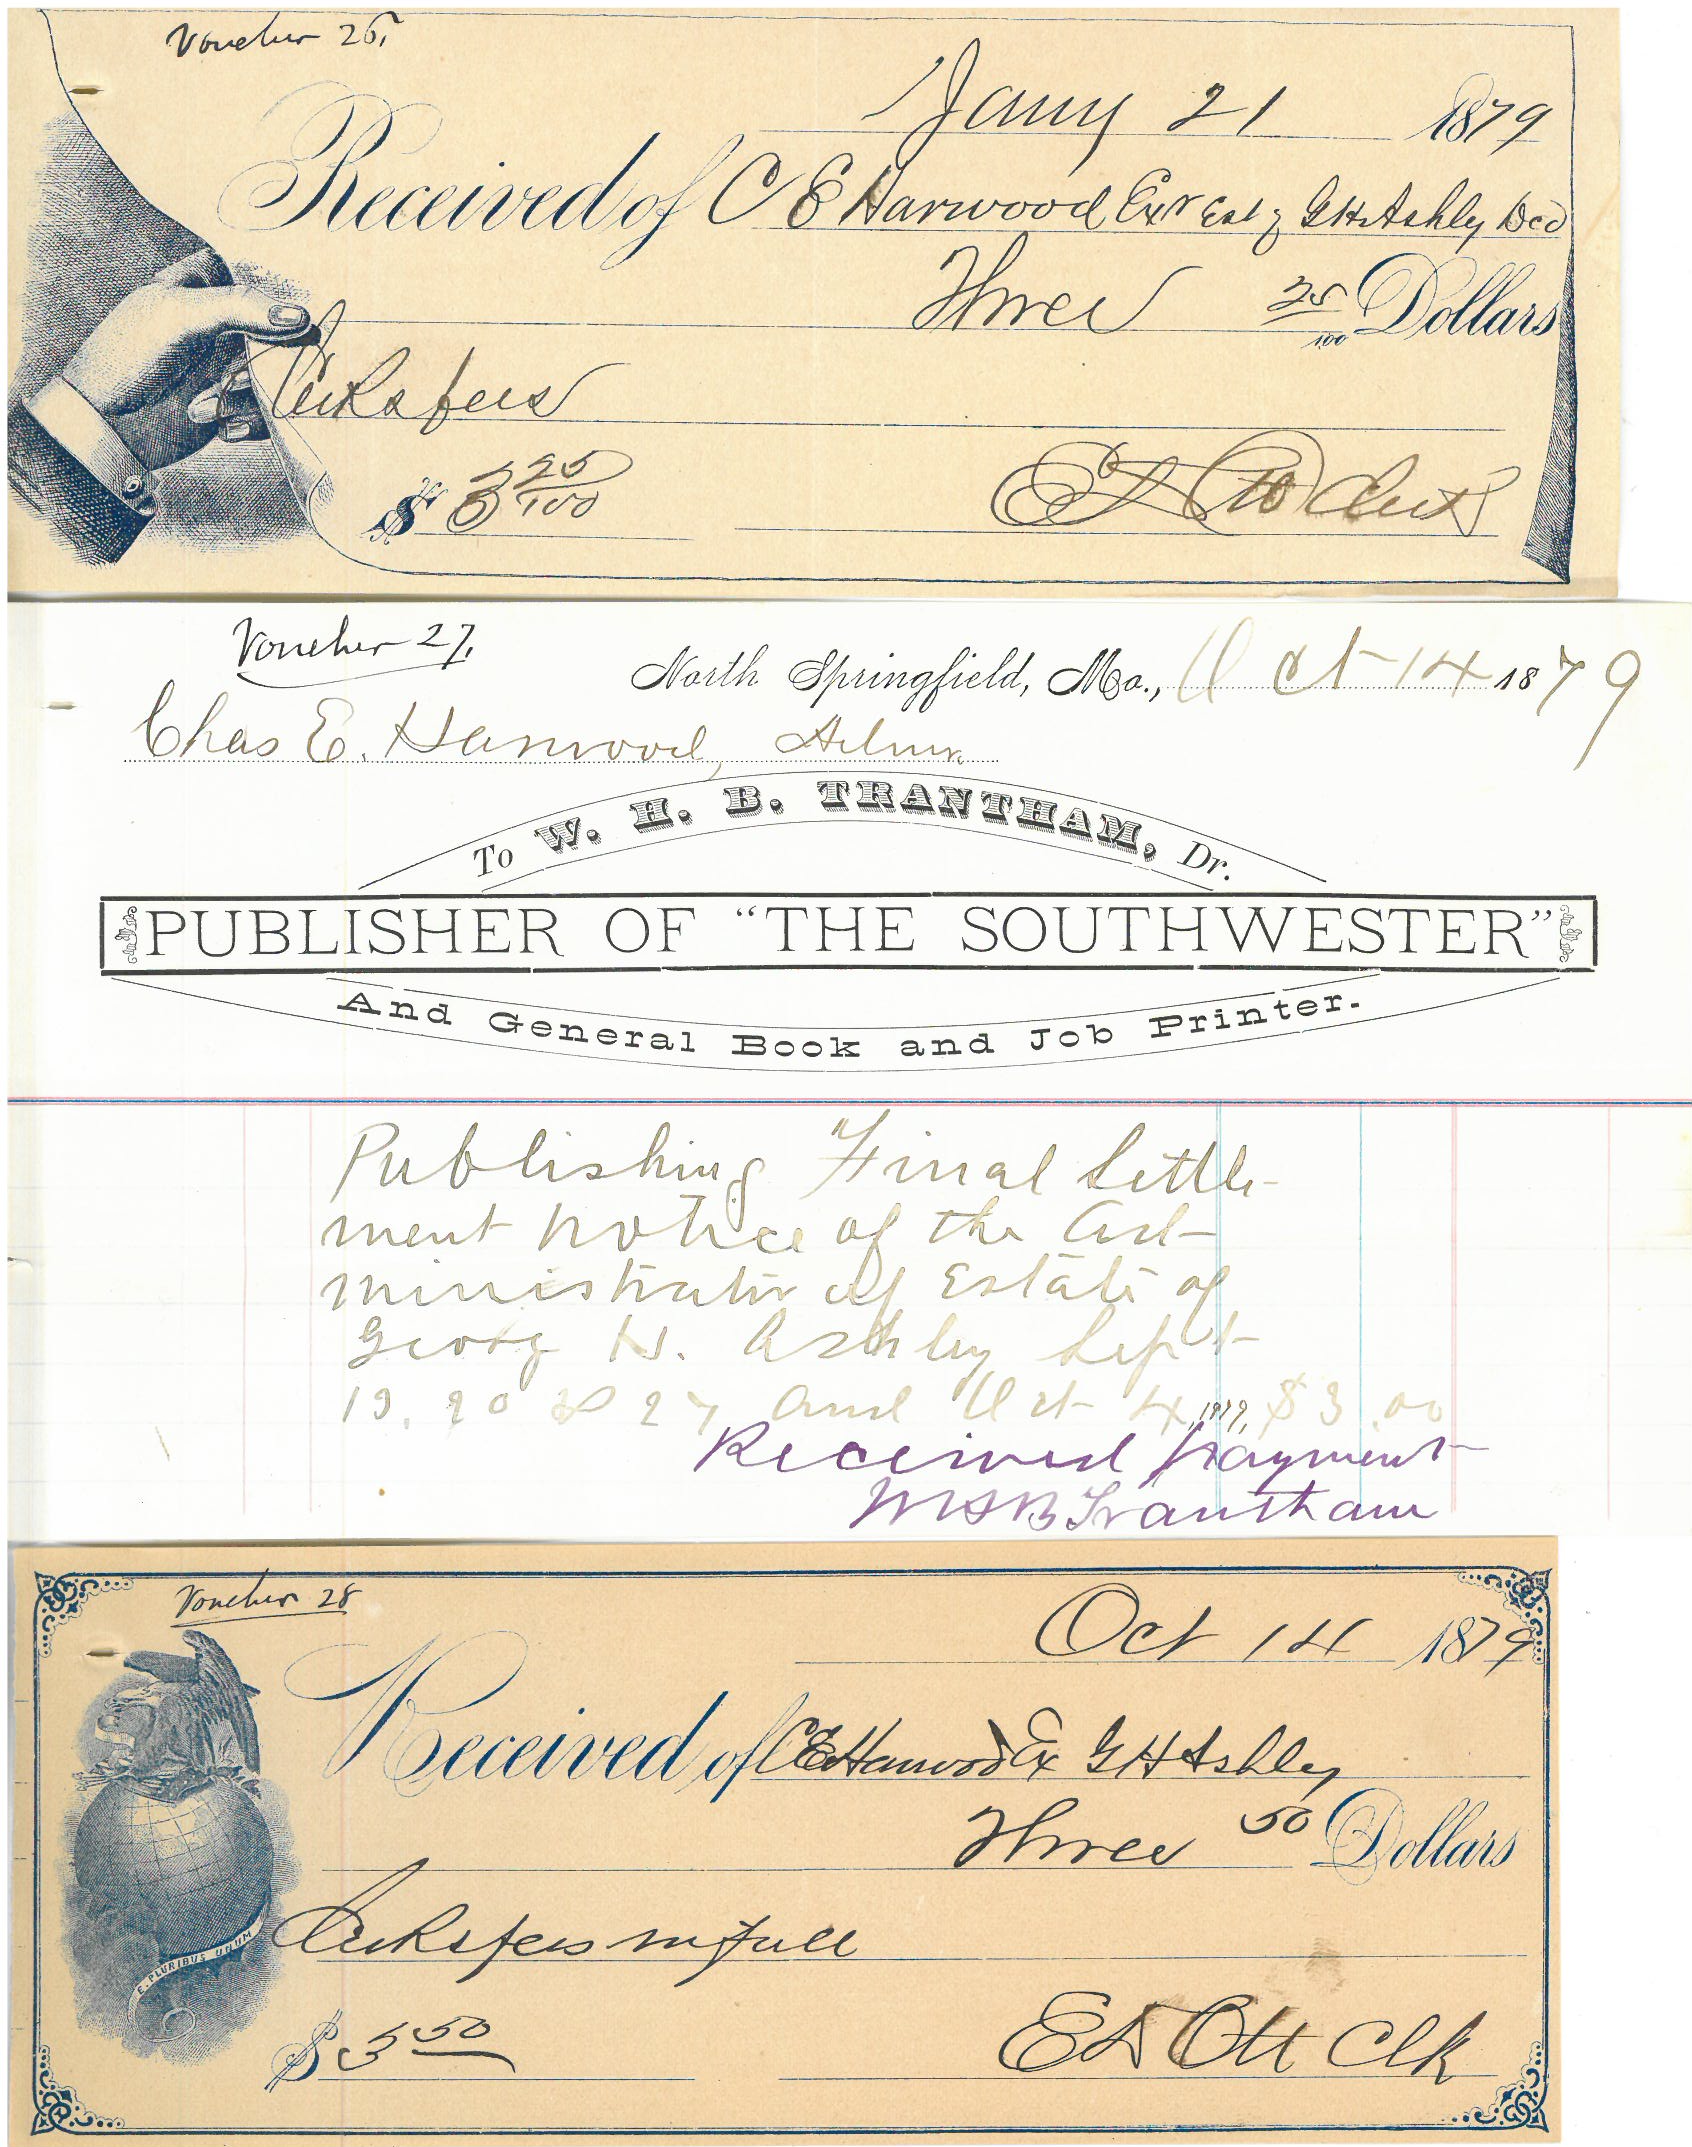 Voucher 26.
Jany 21 1879
Received of C E Harwood Exr Est of G H Ashley Decd
Three 25/100 Dollars
Clerks fees
$ 3 25/100
E D Ott Clerk
Voucher 27.
North Springfield, Mo., Oct 14 1879
Chas E. Harwood, Admr.
To W. H. B. TRANTHAM, Dr.
PUBLISHER OF "THE SOUTHWESTER"
And General Book and Job Printer.
Publishing Final Settle-
ment notice of the Ad-
ministrator of Estate of
George H. Ashley Sept
13, 20 & 27 and Oct 4, 1879, $3.00
Received payment
W H B Trantham
Voucher 28
Oct 14 1879
Received of C E Harwood Ex G H Ashley
Three 50 Dollars
Clerks fees in full
E. PLURIBUS UNUM
$ 3 50
E D Ott Clk